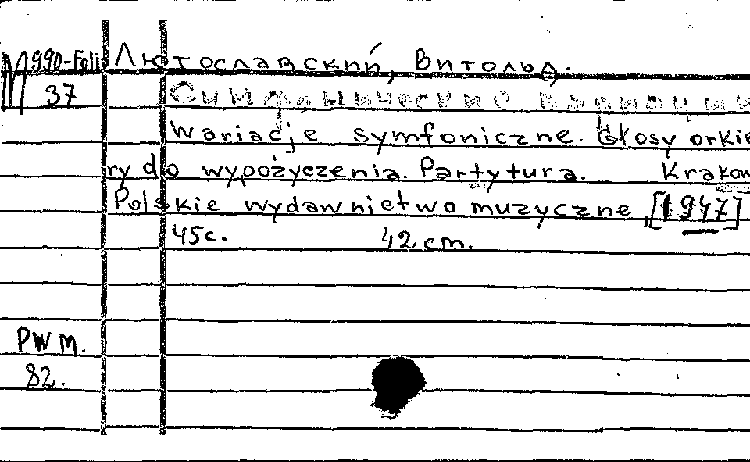 M 990-Foli
37
Лютославский, Витольд.
Симфонические вариации
Wariacje symfoniczne. Głosy orkie
ry do wypożyczenia. Partytura. Krakow
Polskie wydawnietwo muzyczne, [1947]
45c. 42 cm.
PWM.
82.